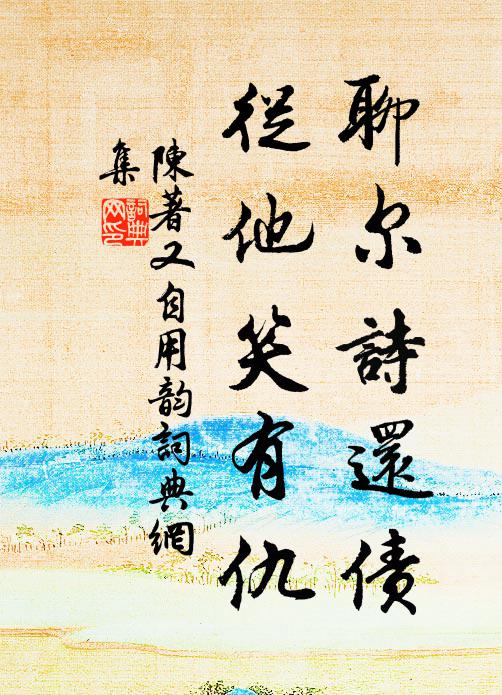 聊尔詩還債
從他笑有仇
陳著又自用韵詞典網
集
詞典网印